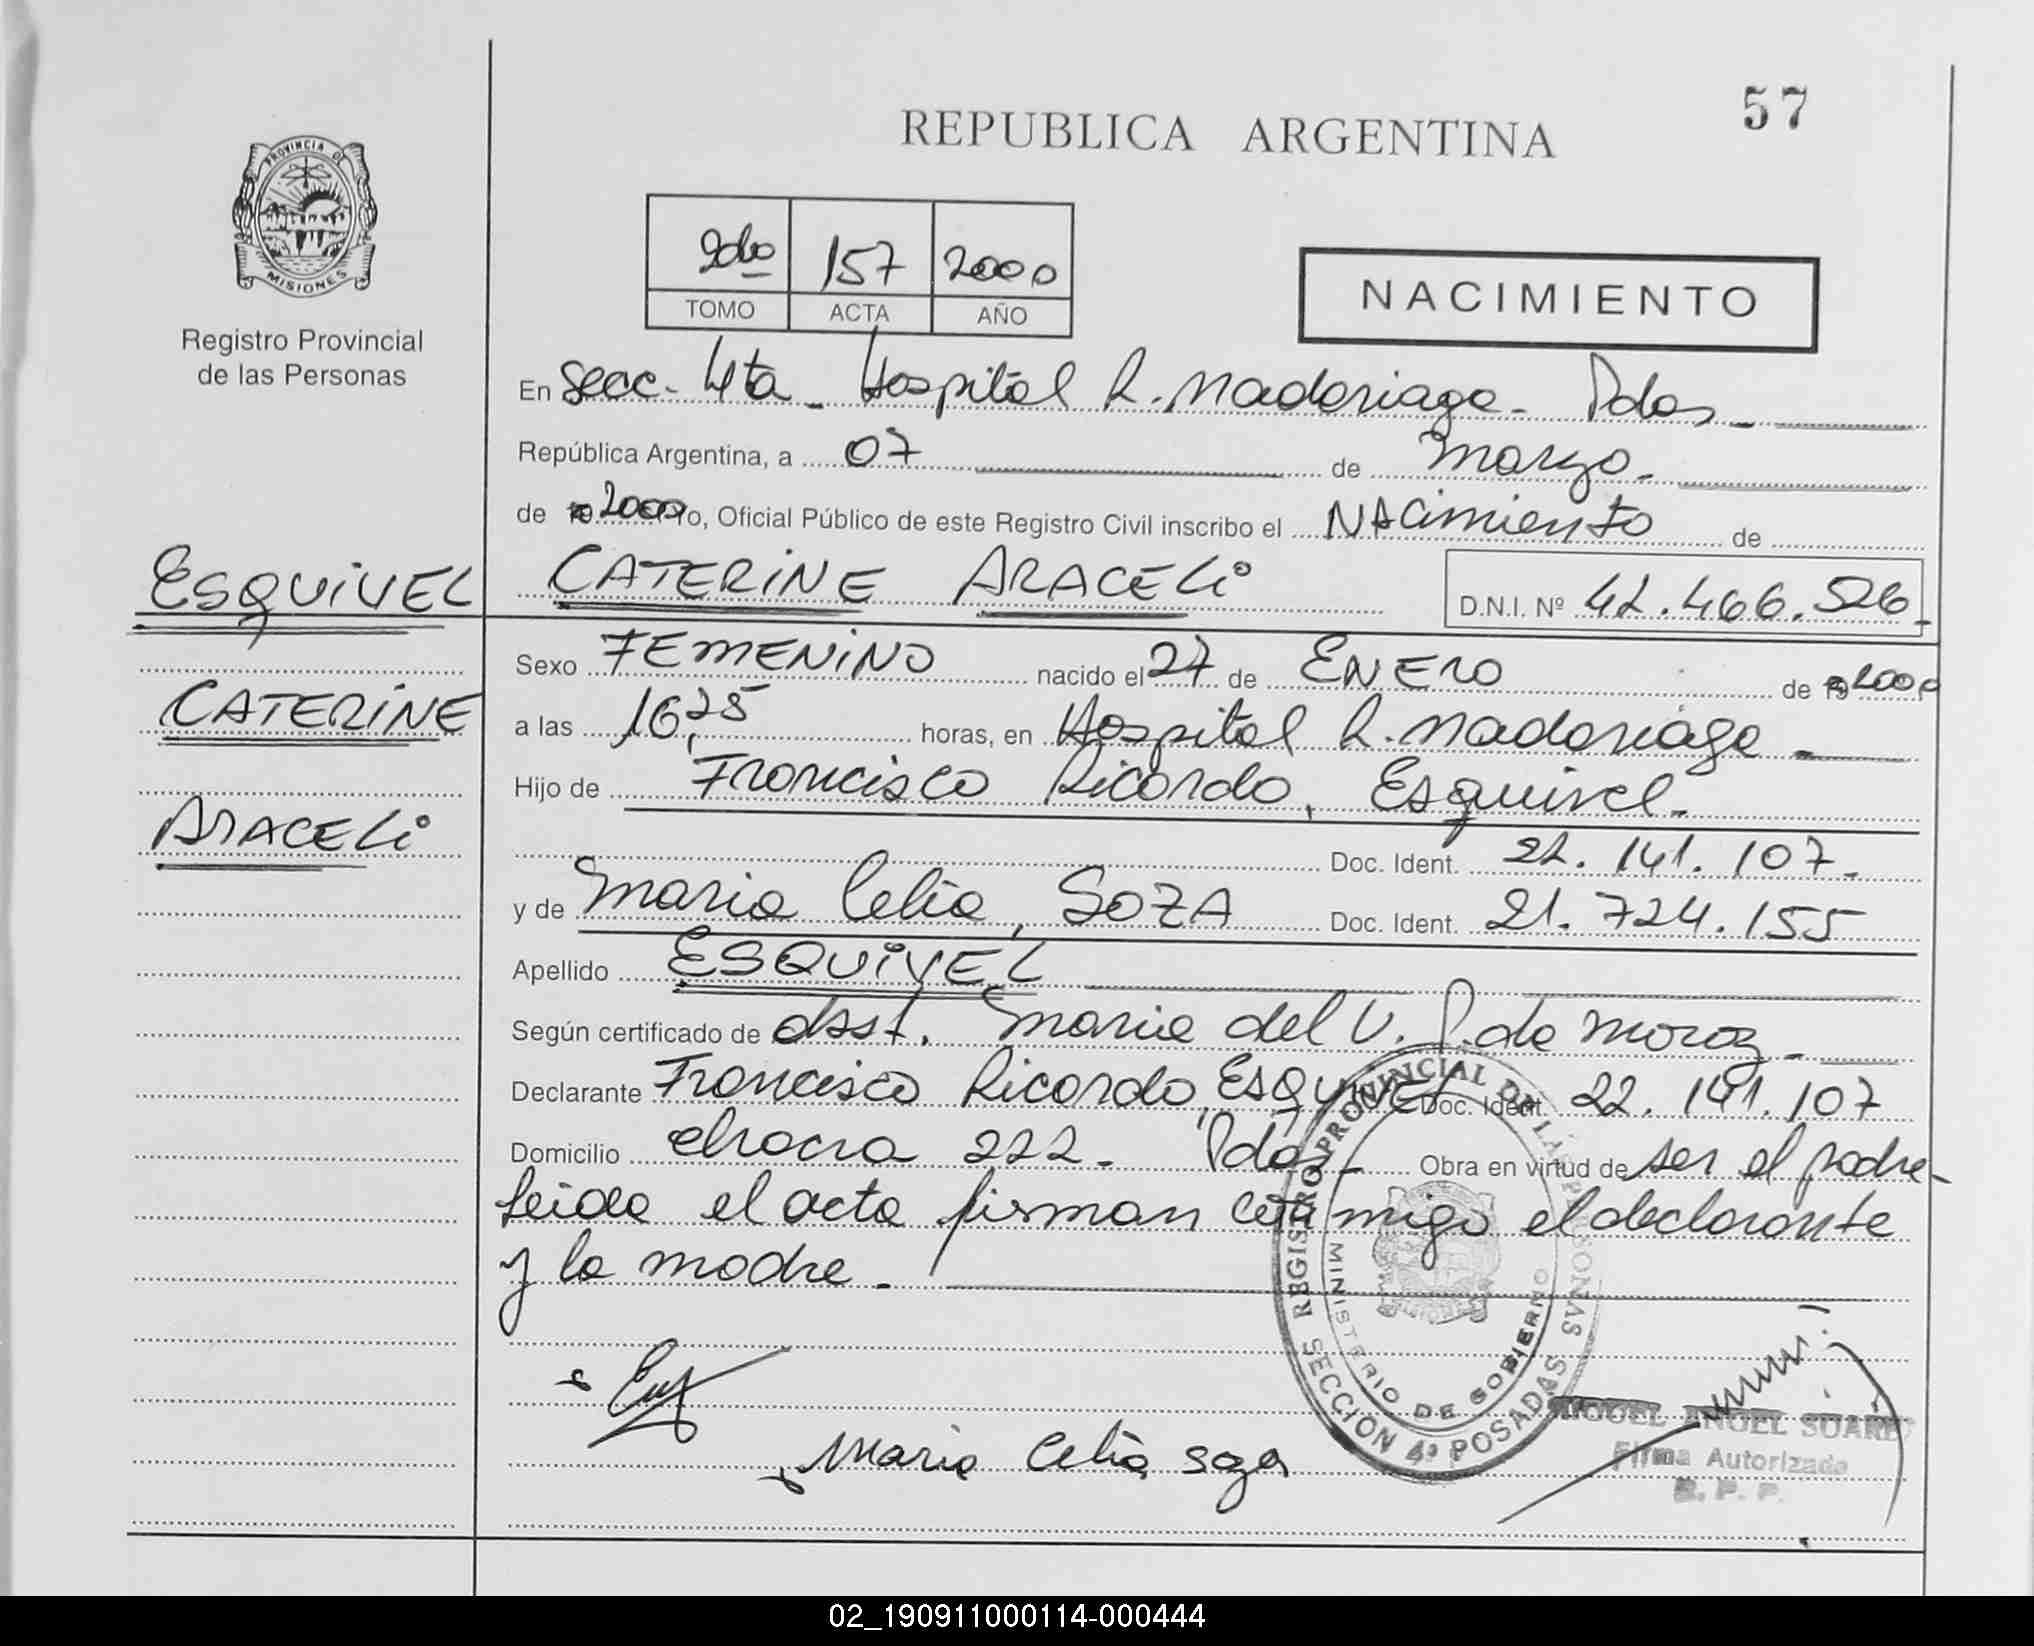 57
REPUBLICA ARGENTINA
PROVINCIA DE
MISIONES
Registro Provincial
de las Personas
2do 157 2000
TOMO ACTA AÑO
NACIMIENTO
En Secc. 4ta - Hospital R. Madariaga - Pdas -
República Argentina, a 07 de Marzo -
de 2000 Yo, Oficial Público de este Registro Civil inscribo el NAcimiento de
ESQUIVEL CATERINE ARACELi
D.N.I. Nº 42.466.526
Sexo FEMENINO nacido el 27 de ENERO de 2000
CATERINE
a las 16,25 horas, en Hospital R. Madariaga -
Hijo de Francisco Ricardo, Esquivel -
ARACELi
Doc. Ident. 22.141.107 -
y de Maria Celia, SOZA Doc. Ident. 21.724.155
Apellido ESQUIVEL
Según certificado de obst. Maria del V. P. de Moroz -
Declarante Francisco Ricardo ESQUIVEL Doc. Ident. 22.141.107
Domicilio chacra 222 - Pdas - Obra en virtud de ser el padre -
Leida el acta firman conmigo el declarante
y la madre -
Maria Celia Soza
REGISTRO PROVINCIAL DE LAS PERSONAS
MINISTERIO DE GOBIERNO
SECCION 4ª POSADAS
MIGUEL ANGEL SUAREZ
Firma Autorizada
R. P. P.
02_190911000114-000444